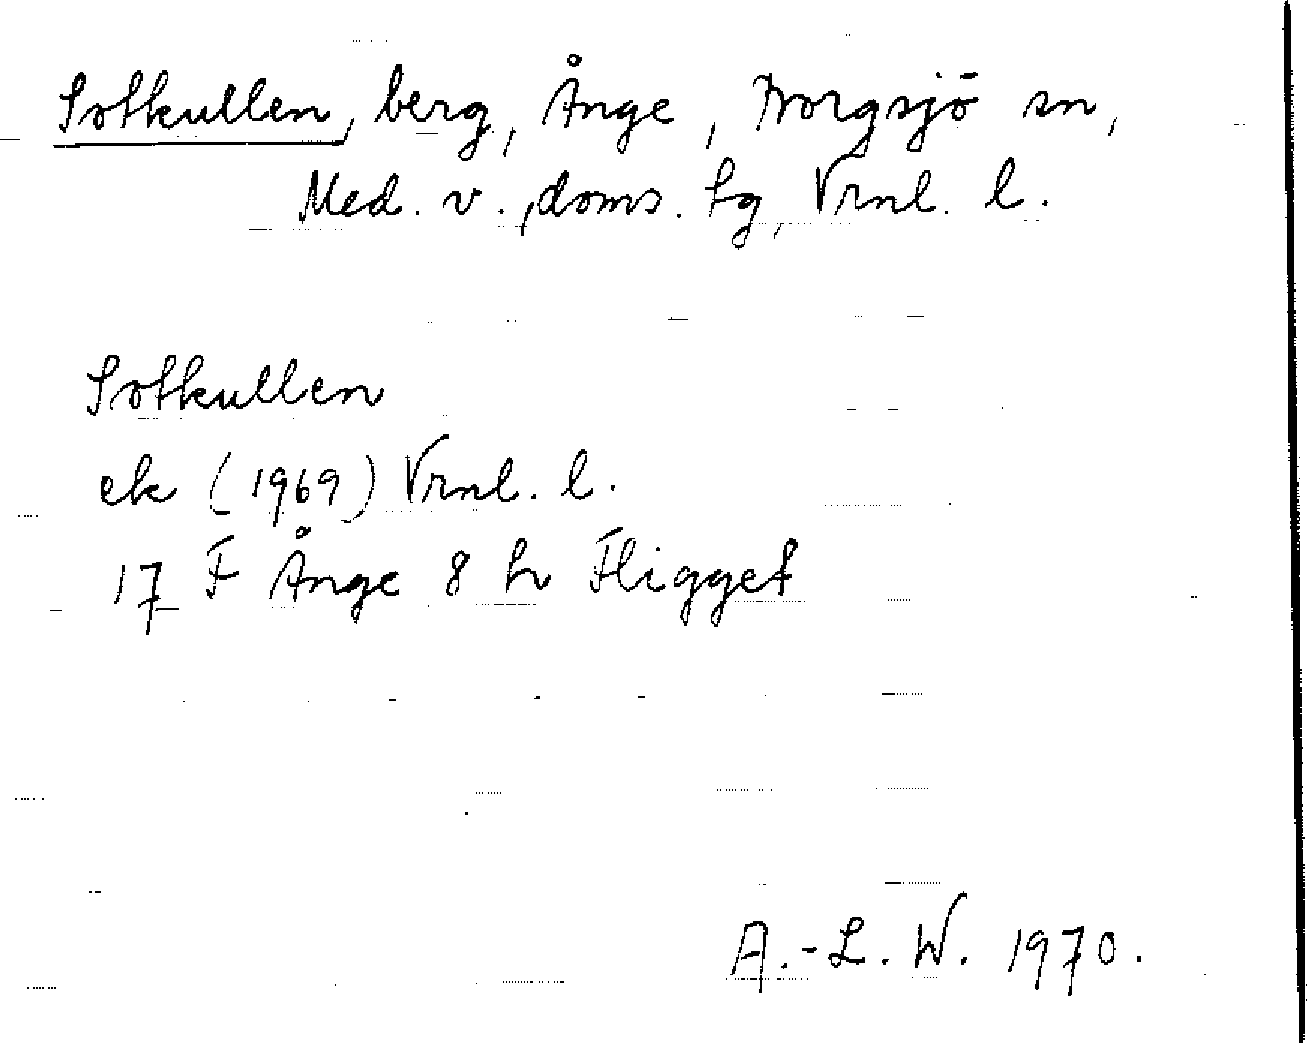 Sotkullen, berg, Ånge, Borgsjö sn,
Med. v., doms. tg, Vrnl. l.
Sotkullen
ek (1969) Vrnl. l.
17 F Ånge 8 h Fligget
A.-L. W. 1970.